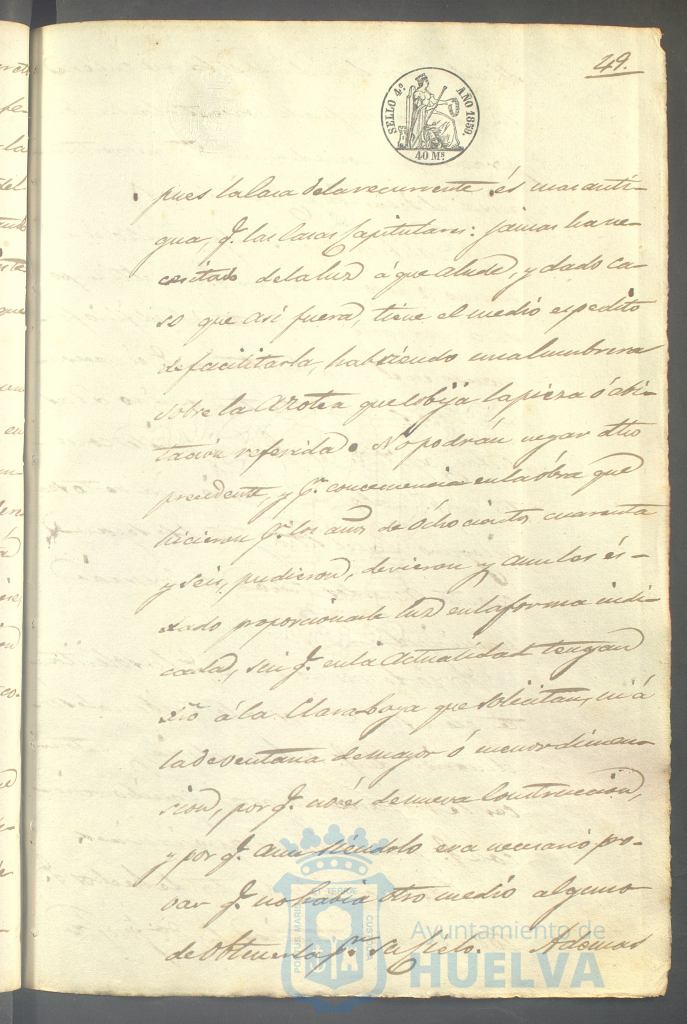 49.
SELLO 4º AÑO 1859.
40 Mˢ
pues la Casa de la recurrente és mas anti-
gua, q.ᵉ las Casas Capitulares: jamas ha ne-
cesitado de la luz á que alude, y dado ca-
so que asi fuera, tiene el medio espedito
de facilitarla, habriendo una lumbrera
sobre la Azotea que cobija la pieza ó abi-
tacion referida. No podrán negar dho
precedente, y q.ᵉ con en la óbra que
hicieron p.ʳ los años de Ochocientos cuarenta
y seis, pudieron, devieron y aun les és-
dado proporcionarle luz en la forma indi-
cada, sin q.ᵉ en la Actualidad tengan
á la Claraboya que Solicitan, ni á
la de ventana de mayor ó menor dimen-
sion, por q.ᵉ no és de nueva Construccion,
y por q.ᵉ aun siéndolo era necesario pro-
var q.ᵉ no habia otro medio alguno
de Obtenerla p.ʳ su Cielo. Ademas
PORTUS MARIS ET TERRE CUSTODIA
Ayuntamiento de
HUELVA